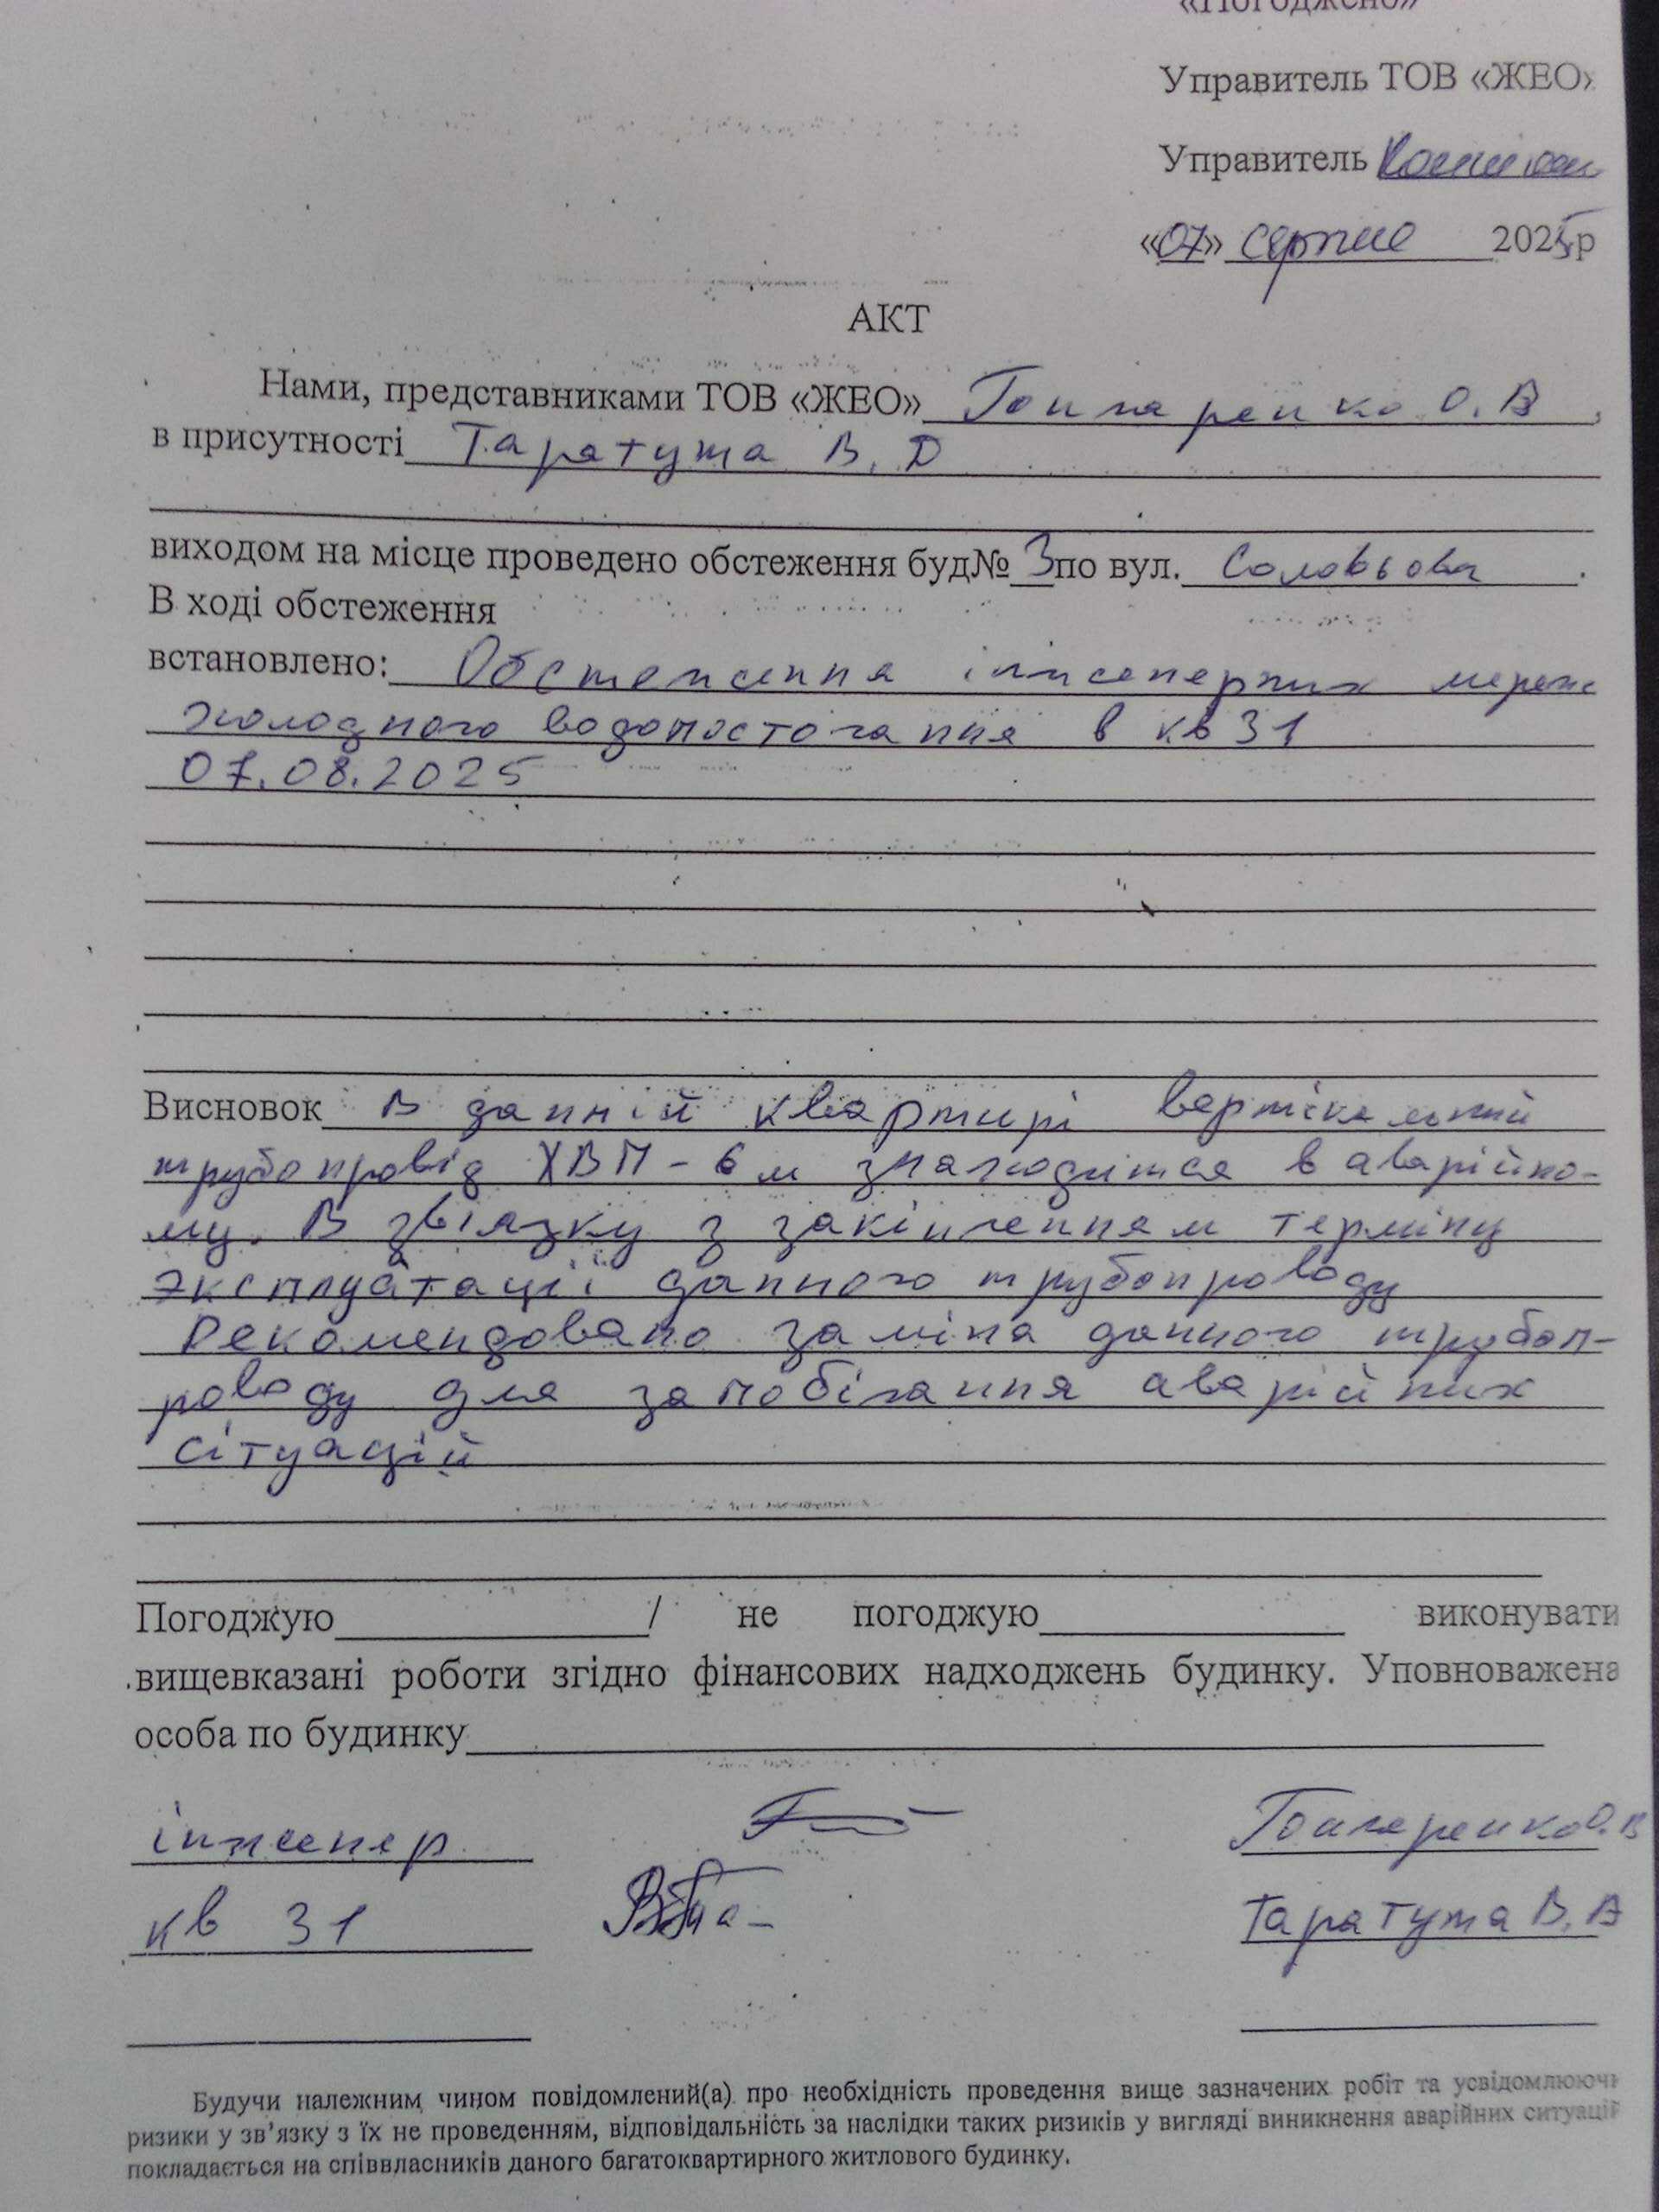 «Погоджено»
Управитель ТОВ «ЖЕО»
Управитель
«07» серпня 2025р
АКТ
Нами, представниками ТОВ «ЖЕО» Гончаренко О.В,
в присутності Таратута В.Д
виходом на місце проведено обстеження буд№ 3 по вул. Соловьова.
В ході обстеження
встановлено: Обстеження інженерних мереж
холодного водопосточання в кв 31
07.08.2025
Висновок В данній квартирі вертікальний
трубопровід ХВП - 6 м знаходится в аварійно-
му. В звіязку з закінченням терміну
эксплуатації данного трубопроводу
Рекомендовано заміна данного трубоп-
роводу для запобігання аварійних
сітуацій
Погоджую / не погоджую виконувати
вищевказані роботи згідно фінансових надходжень будинку. Уповноважена
особа по будинку
інженер Гончаренко О.В
кв 31 Таратута В.Д
Будучи належним чином повідомлений(а) про необхідність проведення вище зазначених робіт та усвідомлюючи
ризики у зв’язку з їх не проведенням, відповідальність за наслідки таких ризиків у вигляді виникнення аварійних ситуацій
покладається на співвласників даного багатоквартирного житлового будинку.